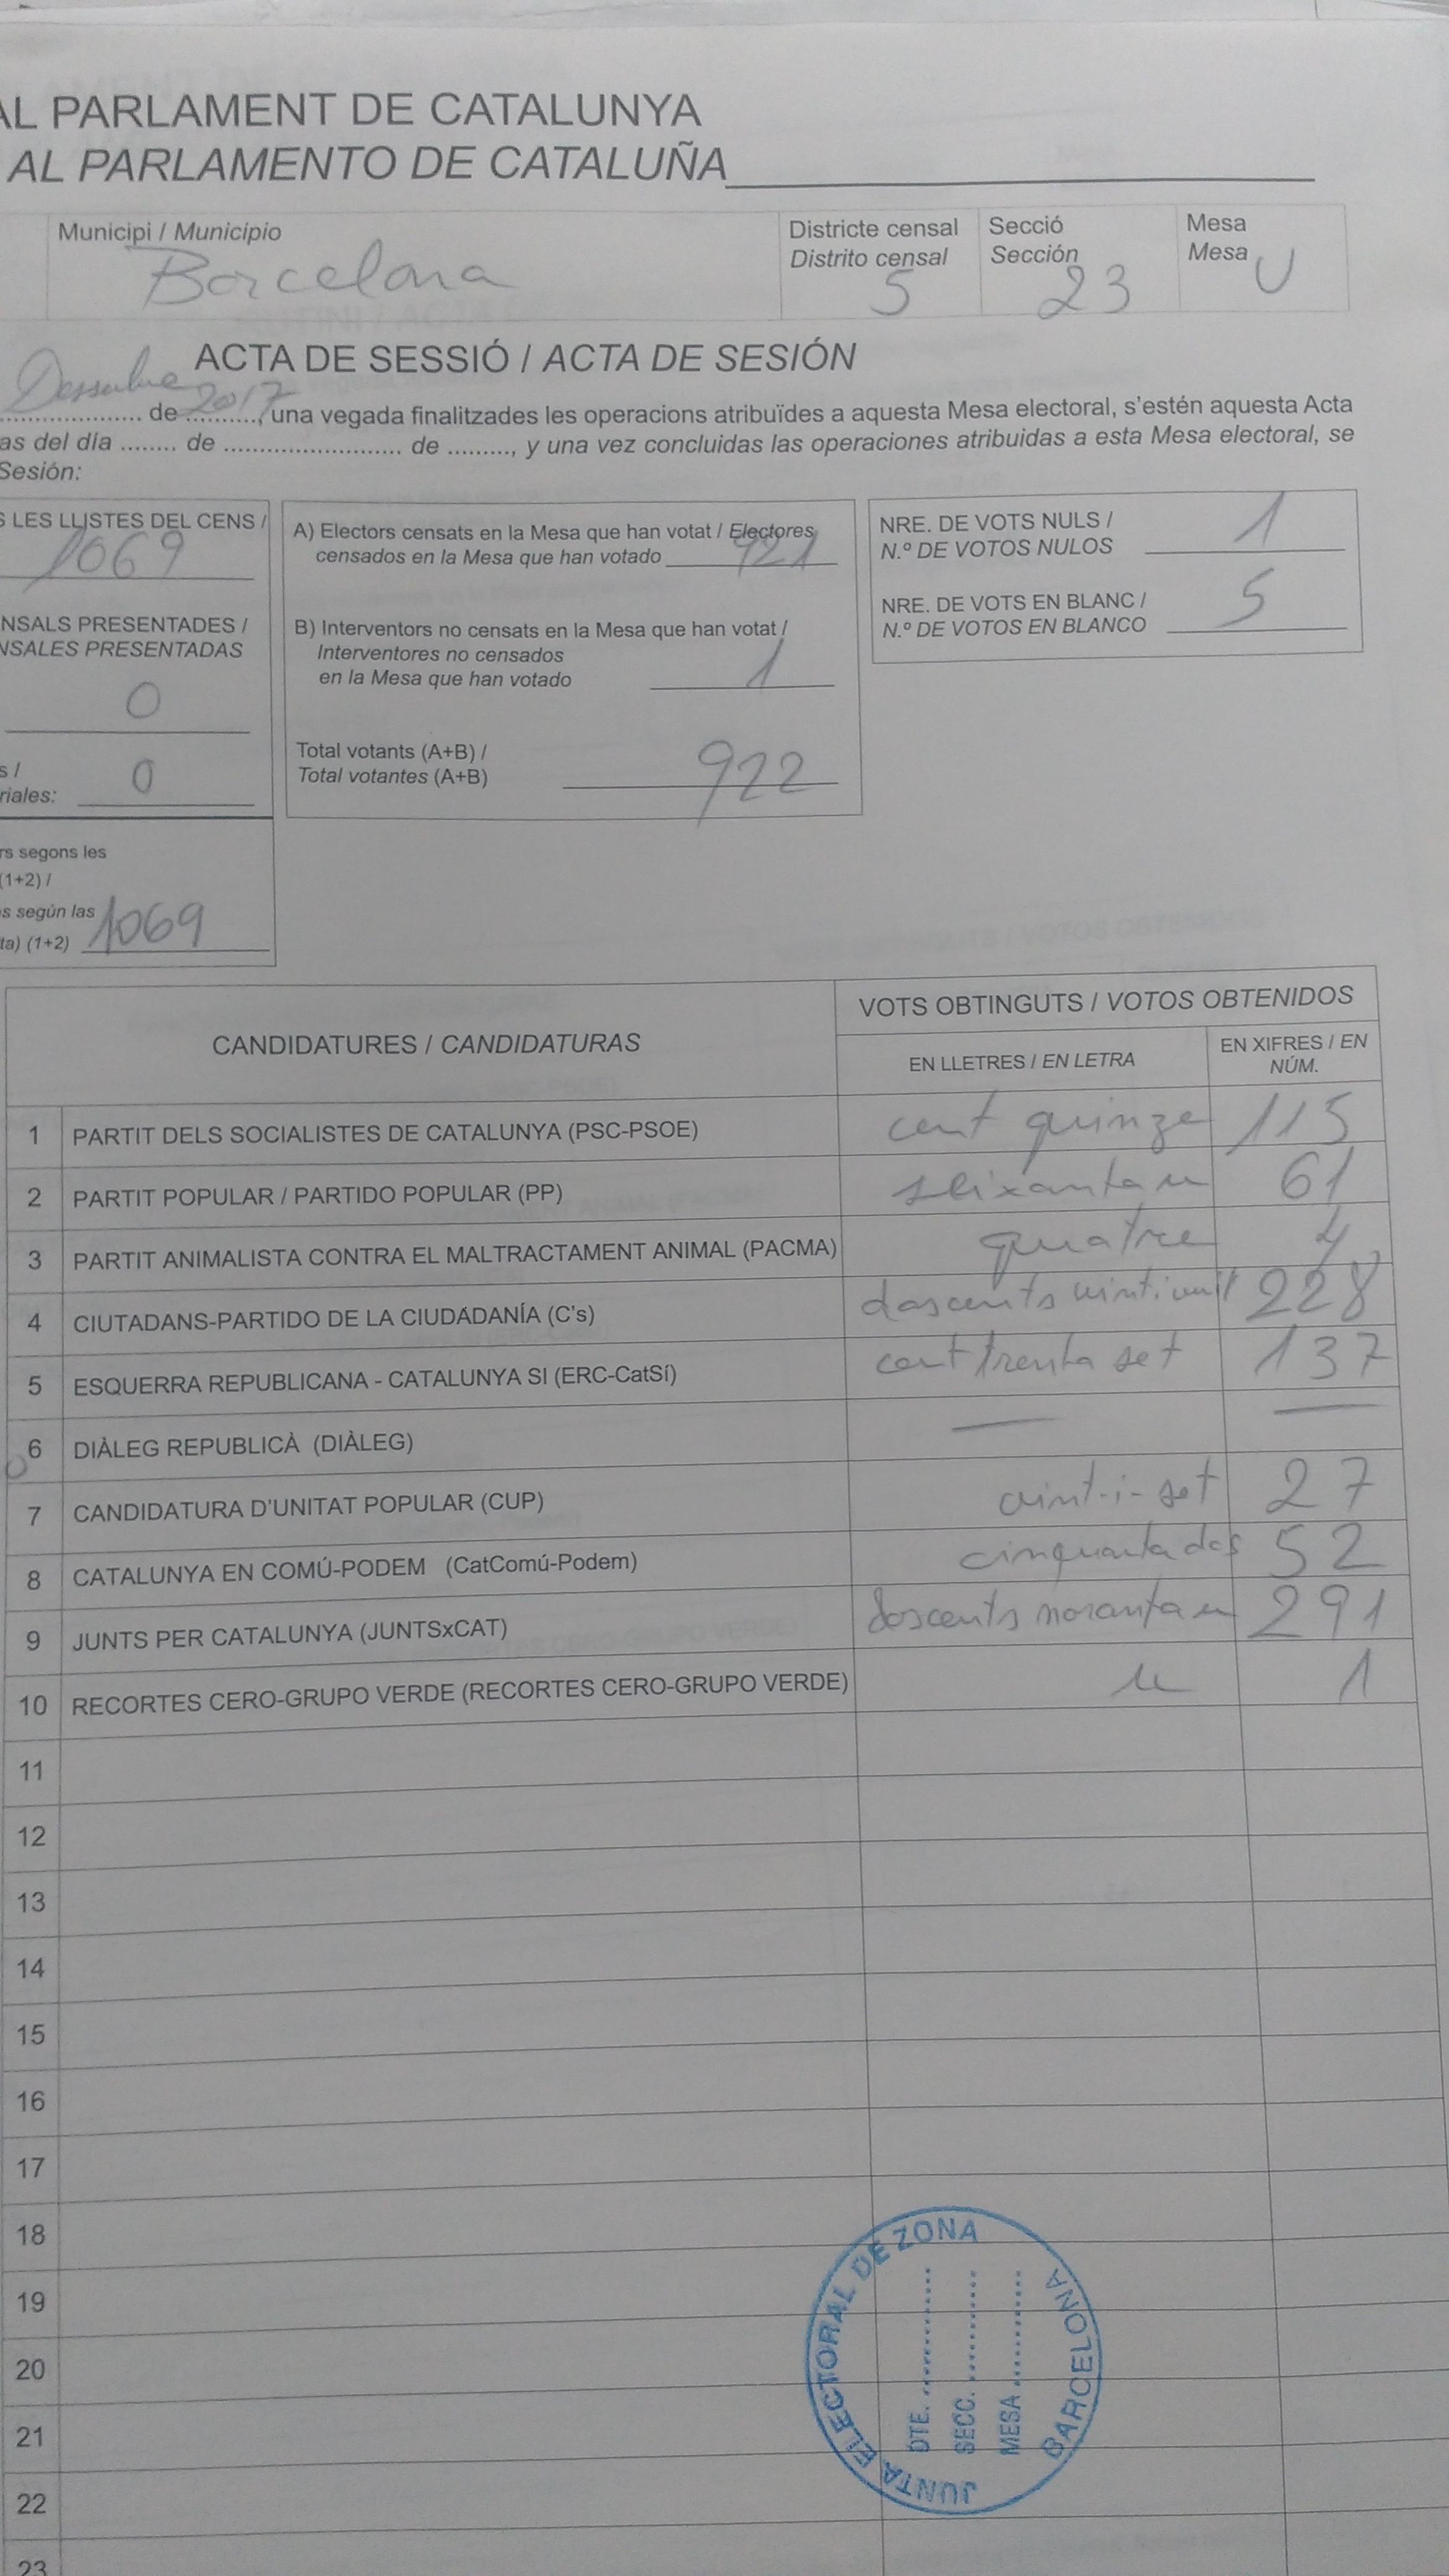 AL PARLAMENT DE CATALUNYA
AL PARLAMENTO DE CATALUÑA
Municipi / Municipio
Barcelona
Districte censal
Distrito censal
5
Secció
Sección
23
Mesa
Mesa
U
ACTA DE SESSIÓ / ACTA DE SESIÓN
de 2017, una vegada finalitzades les operacions atribuïdes a aquesta Mesa electoral, s'estén aquesta Acta
as del día ........ de ......................... de ........., y una vez concluidas las operaciones atribuidas a esta Mesa electoral, se
Sesión:
S LES LLISTES DEL CENS /
1069
NSALS PRESENTADES /
NSALES PRESENTADAS
0
s /
riales: 0
rs segons les
(1+2) /
s según las
ta) (1+2) 1069
A) Electors censats en la Mesa que han votat / Electores
censados en la Mesa que han votado 921
B) Interventors no censats en la Mesa que han votat /
Interventores no censados
en la Mesa que han votado 1
Total votants (A+B) /
Total votantes (A+B) 922
NRE. DE VOTS NULS /
N.º DE VOTOS NULOS 1
NRE. DE VOTS EN BLANC /
N.º DE VOTOS EN BLANCO 5
CANDIDATURES / CANDIDATURAS
VOTS OBTINGUTS / VOTOS OBTENIDOS
EN LLETRES / EN LETRA
EN XIFRES / EN NÚM.
1 PARTIT DELS SOCIALISTES DE CATALUNYA (PSC-PSOE) cent quinze 115
2 PARTIT POPULAR / PARTIDO POPULAR (PP) seixanta u 61
3 PARTIT ANIMALISTA CONTRA EL MALTRACTAMENT ANIMAL (PACMA) quatre 4
4 CIUTADANS-PARTIDO DE LA CIUDADANÍA (C's) doscents vintivuit 228
5 ESQUERRA REPUBLICANA - CATALUNYA SI (ERC-CatSí) cent trenta set 137
6 DIÀLEG REPUBLICÀ (DIÀLEG) — —
7 CANDIDATURA D'UNITAT POPULAR (CUP) vint-i-set 27
8 CATALUNYA EN COMÚ-PODEM (CatComú-Podem) cinquanta dos 52
9 JUNTS PER CATALUNYA (JUNTSxCAT) doscents noranta u 291
10 RECORTES CERO-GRUPO VERDE (RECORTES CERO-GRUPO VERDE) u 1
11
12
13
14
15
16
17
18
19
20
21
22
23
JUNTA ELECTORAL DE ZONA
DTE. ............
SECC. ............
MESA ............
BARCELONA